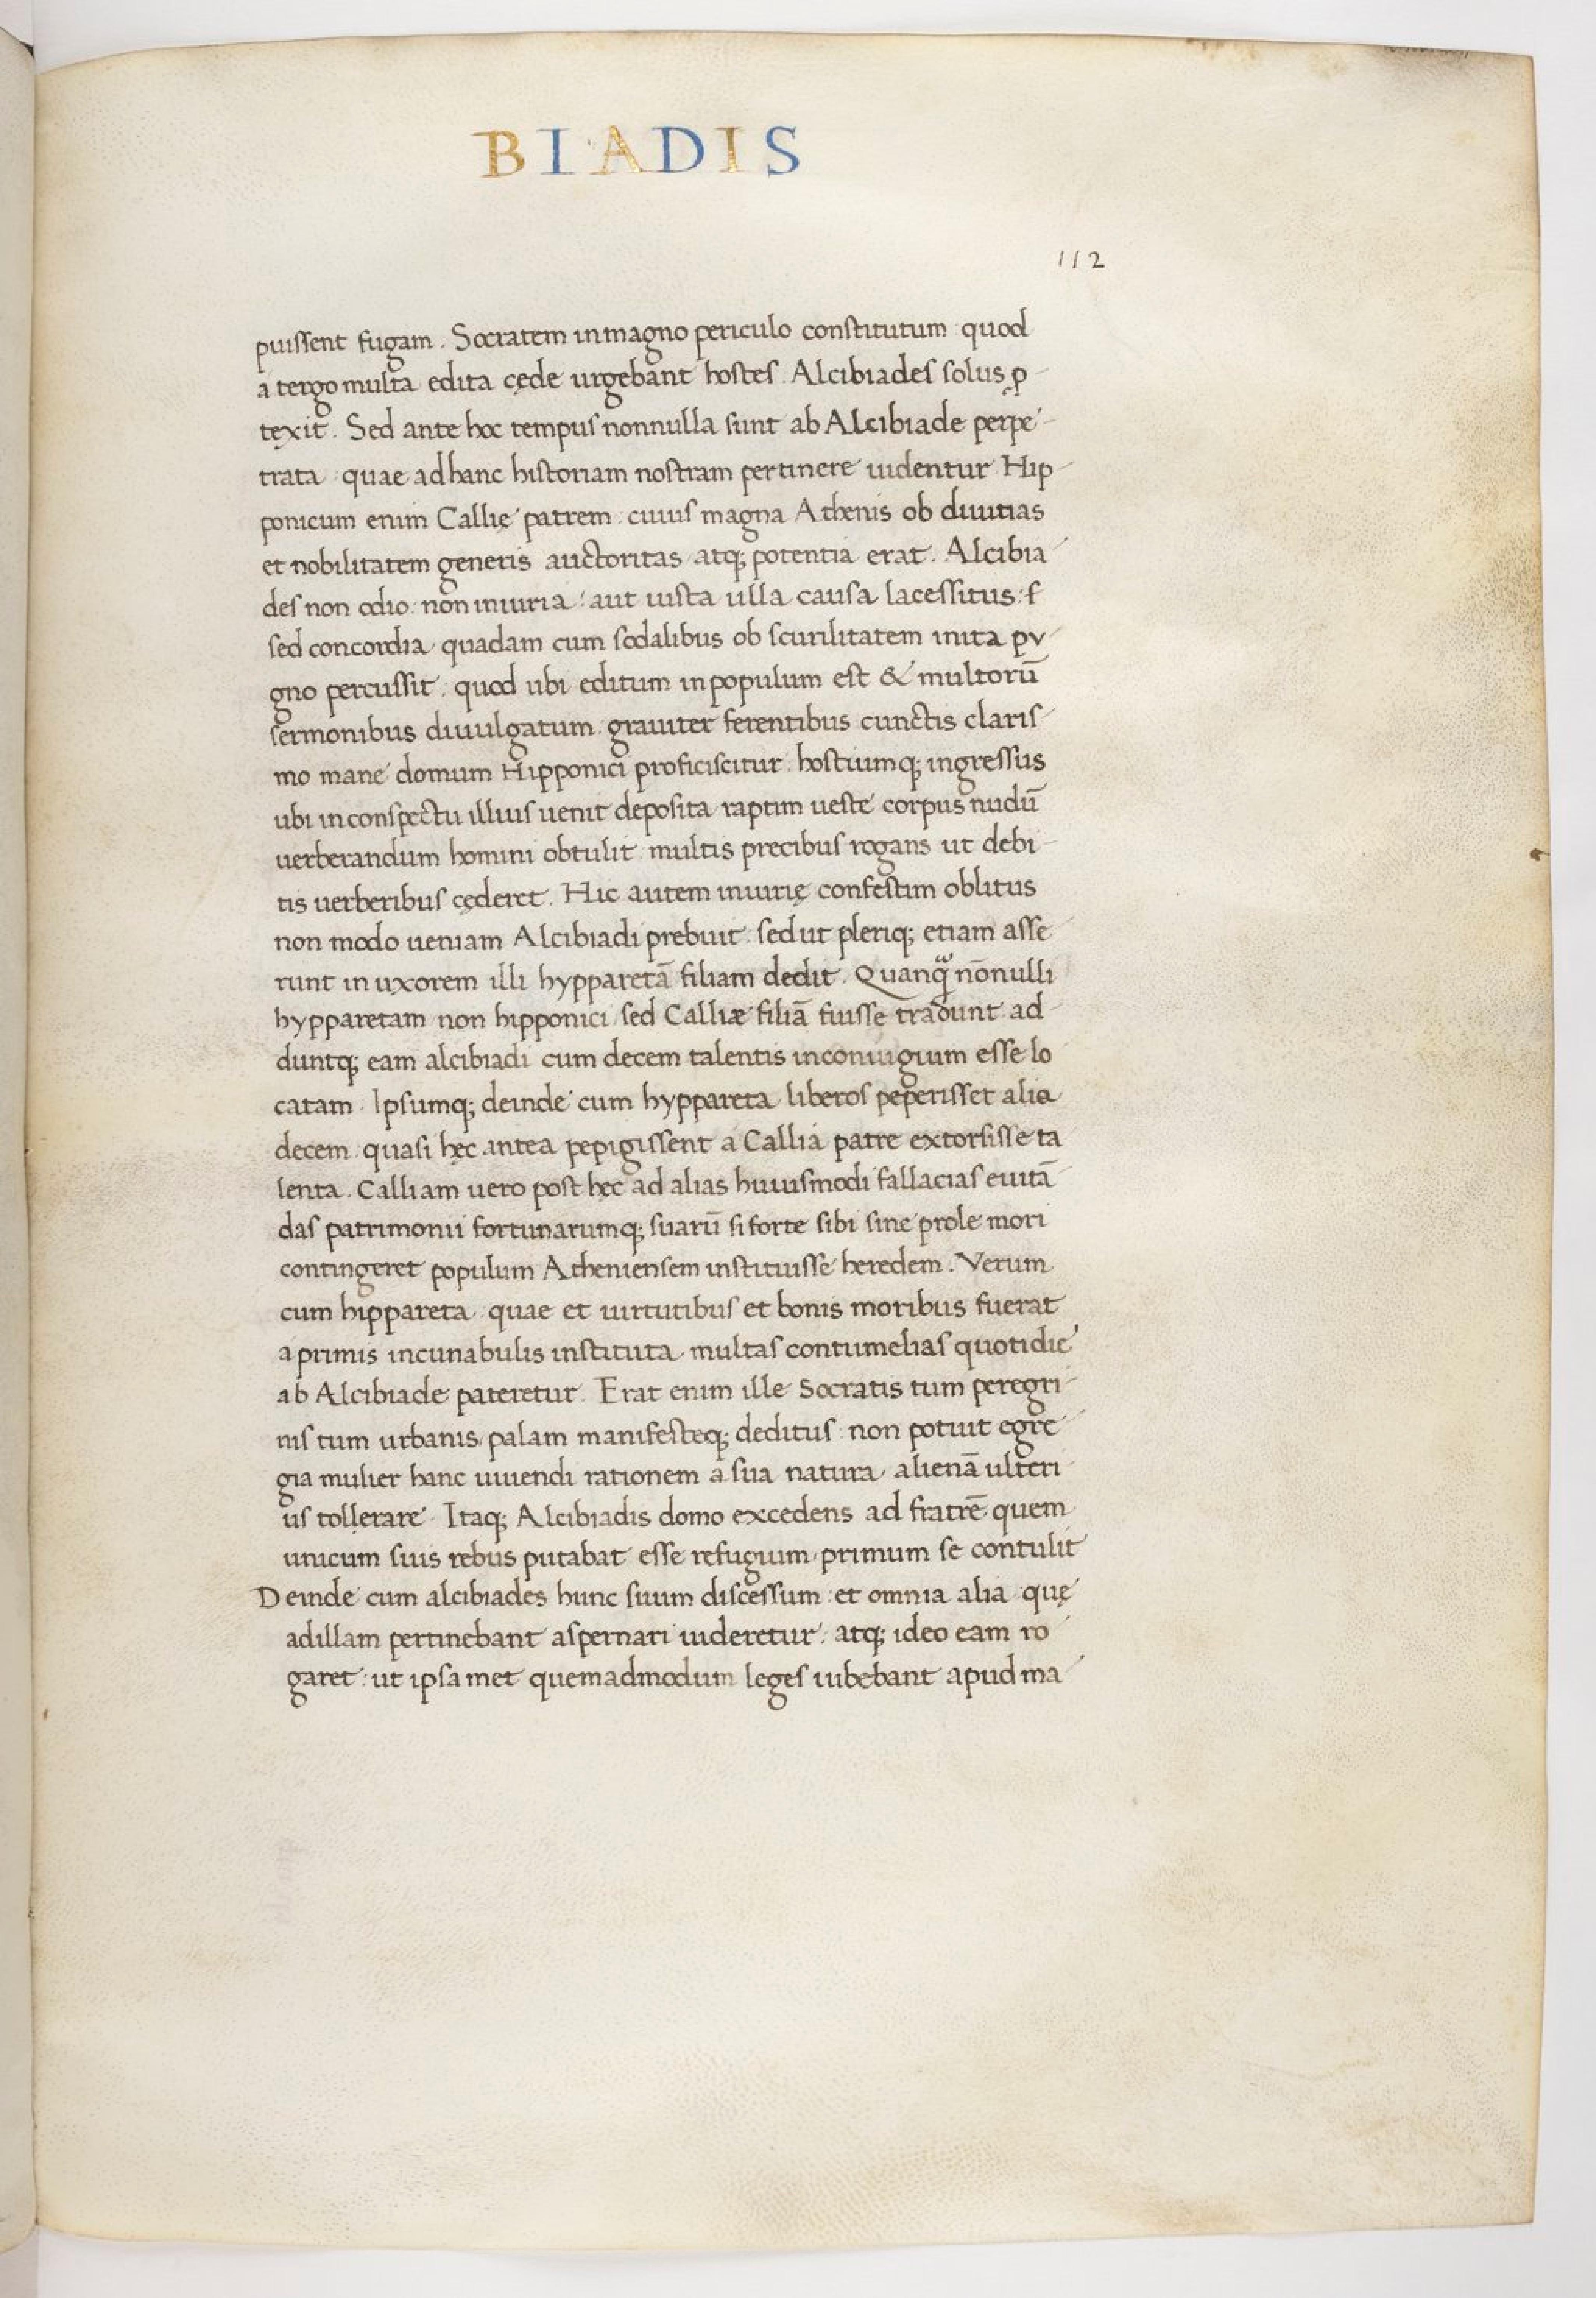 BIADIS
112
puissent fugam. Socratem in magno periculo constitutum: quod
a tergo multa edita cęde urgebant hostes. Alcibiades solus ꝓ-
texit. Sed ante hoc tempus nonnulla sunt ab Alcibiade perpe-
trata: quae ad hanc historiam nostram pertinere uidentur Hip-
ponicum enim Callię patrem: cuius magna Athenis ob diuitias
et nobilitatem generis auctoritas atq; potentia erat. Alcibia-
des non odio: non iniuria: aut iusta ulla causa lacessitus: f
sed concordia quadam cum sodalibus ob scurilitatem inita pu-
gno percussit: quod ubi editum in populum est & multorū
sermonibus diuulgatum grauiter ferentibus cunctis claris-
mo mane domum Hipponici proficiscitur: hostiumq; ingressus
ubi in conspectu illius uenit deposita raptim ueste corpus nudū
uerberandum homini obtulit multis precibus rogans ut debi-
tis uerberibus cęderet. Hic autem iniurię confestim oblitus
non modo ueniam Alcibiadi prebuit: sed ut pleriq; etiam asse-
runt in uxorem illi hypparetā filiam dedit. Quanꝗ̃ nōnulli
hypparetam non hipponici sed Calliæ filiā fuisse tradunt ad-
duntq; eam alcibiadi cum decem talentis in coniugium esse lo-
catam. Ipsumq; deinde cum hyppareta liberos peperisset alia
decem quasi hęc antea pepigissent a Callia patre extorsisse ta-
lenta. Calliam uero post hęc ad alias huiusmodi fallacias euitā-
das patrimonii fortunarumq; suarū si forte sibi sine prole mori
contingeret populum Atheniensem instituisse heredem. Verum
cum hippareta quae et uirtutibus et bonis moribus fuerat
a primis incunabulis instituta multas contumelias quotidie
ab Alcibiade pateretur. Erat enim ille Socratis tum peregri-
nis tum urbanis palam manifesteq; deditus: non potuit egre-
gia mulier hanc uiuendi rationem a sua natura alienā ulteri-
us tollerare. Itaq; Alcibiadis domo excedens ad fratrē quem
unicum suis rebus putabat esse refugium primum se contulit
Deinde cum alcibiades hunc suum discessum: et omnia alia quę
ad illam pertinebant aspernari uideretur: atq; ideo eam ro-
garet: ut ipsa met quemadmodum leges iubebant apud ma-